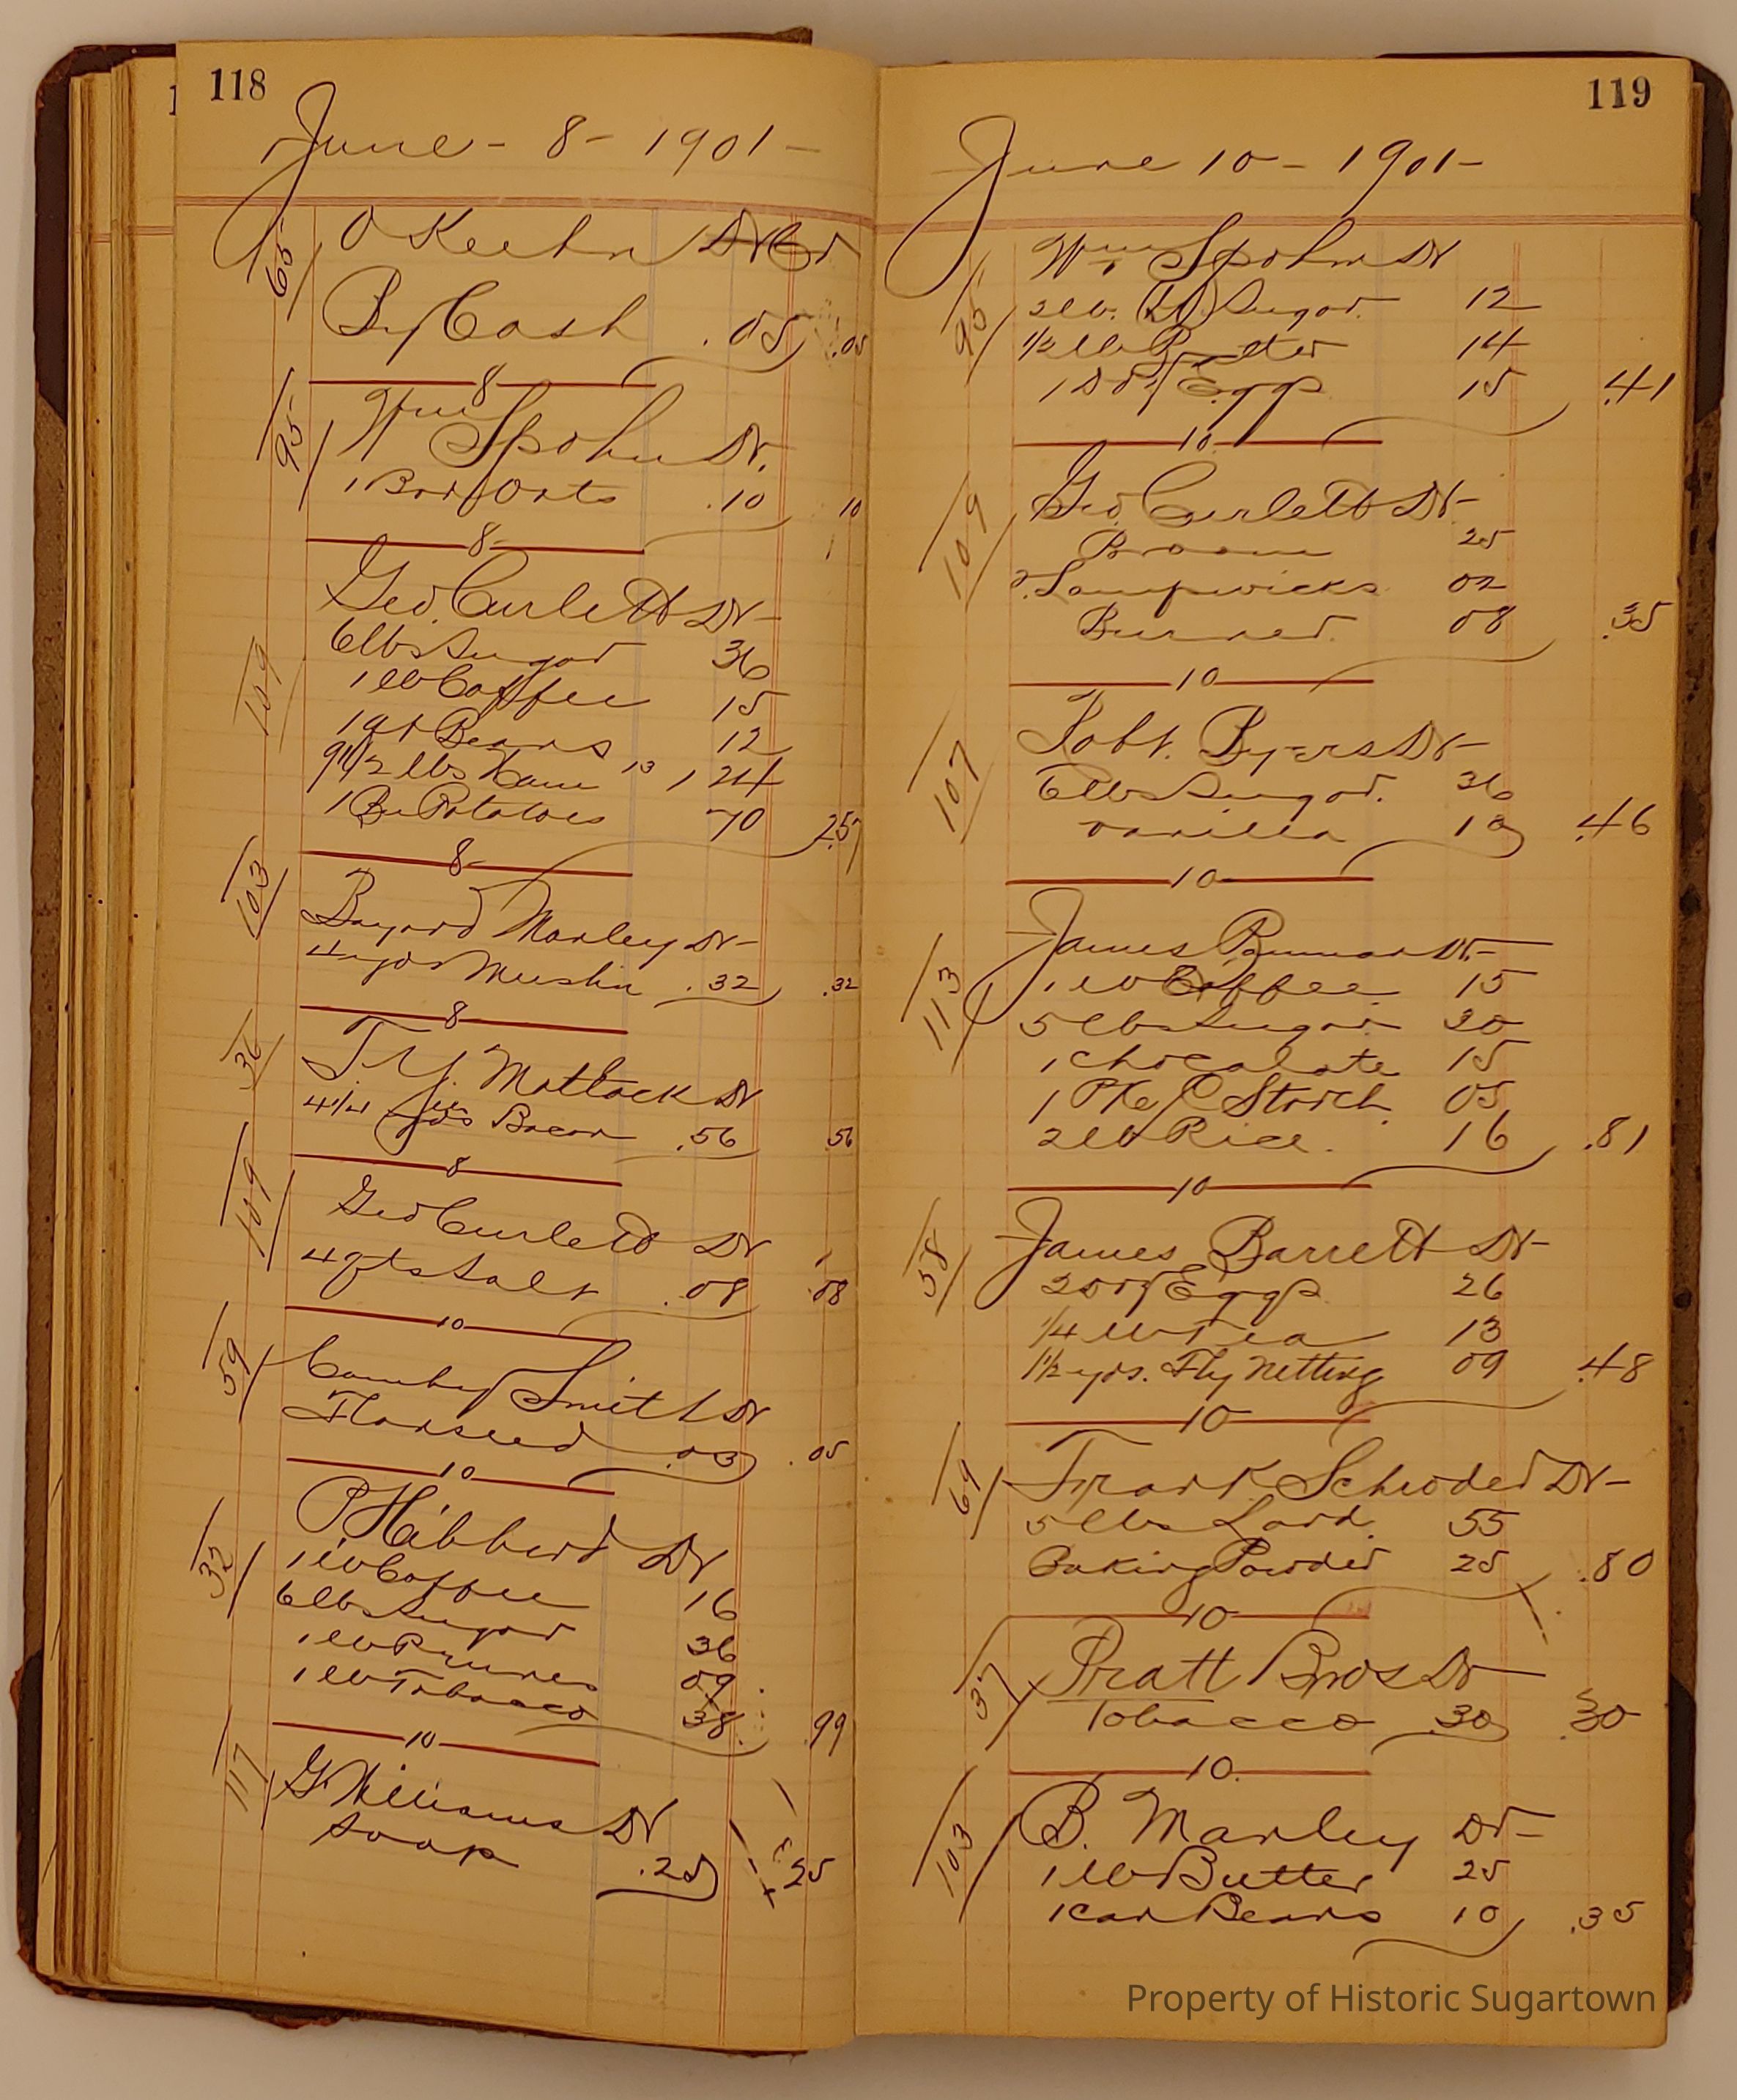 118
June - 8 - 1901 -
65 O Keehn Dr Cr
By Cash .05 .05
8
95 Wm Spohn Dr.
1 Box Oats .10 10
8
109 Geo. Curlett Dr -
6 lbs Sugar 36
1 lb Coffee 15
1 qt Beans 12
9 1/2 lbs Ham 13 1 24
1 Bu Potatoes 70 2.57
8
103 Bayard Manley Dr -
4 yds Muslin .32 .32
8
36 T. Y. Matlack Dr
4 1/4 lbs Bacon .56 .56
8
109 Geo Curlett Dr
4 qts Salt .08 .08
10
59 Smith Dr
Flaxseed .05
10
32 P Hibberd Dr
1 lb Coffee 16
6 lbs Sugar 36
1 lb Prunes 09
1 lb Tobacco 38 .99
10
117 G Williams Dr
Soap .25 .25
119
June 10 - 1901 -
95 Wm Spohn Dr
2 lb. Sugar 12
1/2 lb Butter 14
1 Doz Eggs 15 .41
10
109 Geo. Curlett Dr -
Broom 25
2 Lampwicks 02
Burner 08 .35
10
107 Robt. Byers Dr -
6 lbs Sugar. 36
vanilla 10 .46
10
113 James Dr. -
1 lb Coffee 15
5 lbs Sugar 30
1 chocalate 15
1 PKg C Starch 05
2 lb Rice. 16 .81
10
58 James Barrett Dr -
2 doz Eggs 26
1/4 lb Tea 13
1 1/2 yds. Fly Netting 09 .48
10
69 Frank Schroder Dr -
5 lbs Lard. 55
Baking Powder 25 .80
10
37 Pratt Bros Dr
Tobacco 30 .30
10
103 B. Manley Dr -
1 lb Butter 25
1 can Beans 10 .35
Property of Historic Sugartown